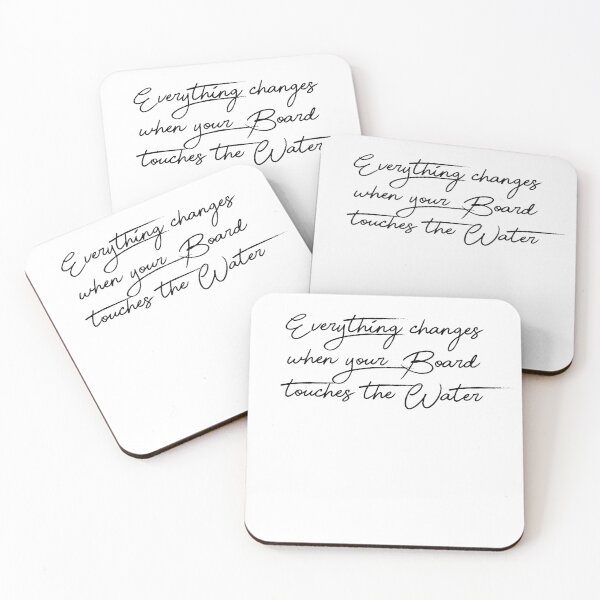 Everything changes
when your Board
touches the Water
Everything changes
when your Board
touches the Water
Everything changes
when your Board
touches the Water
Everything changes
when your Board
touches the Water